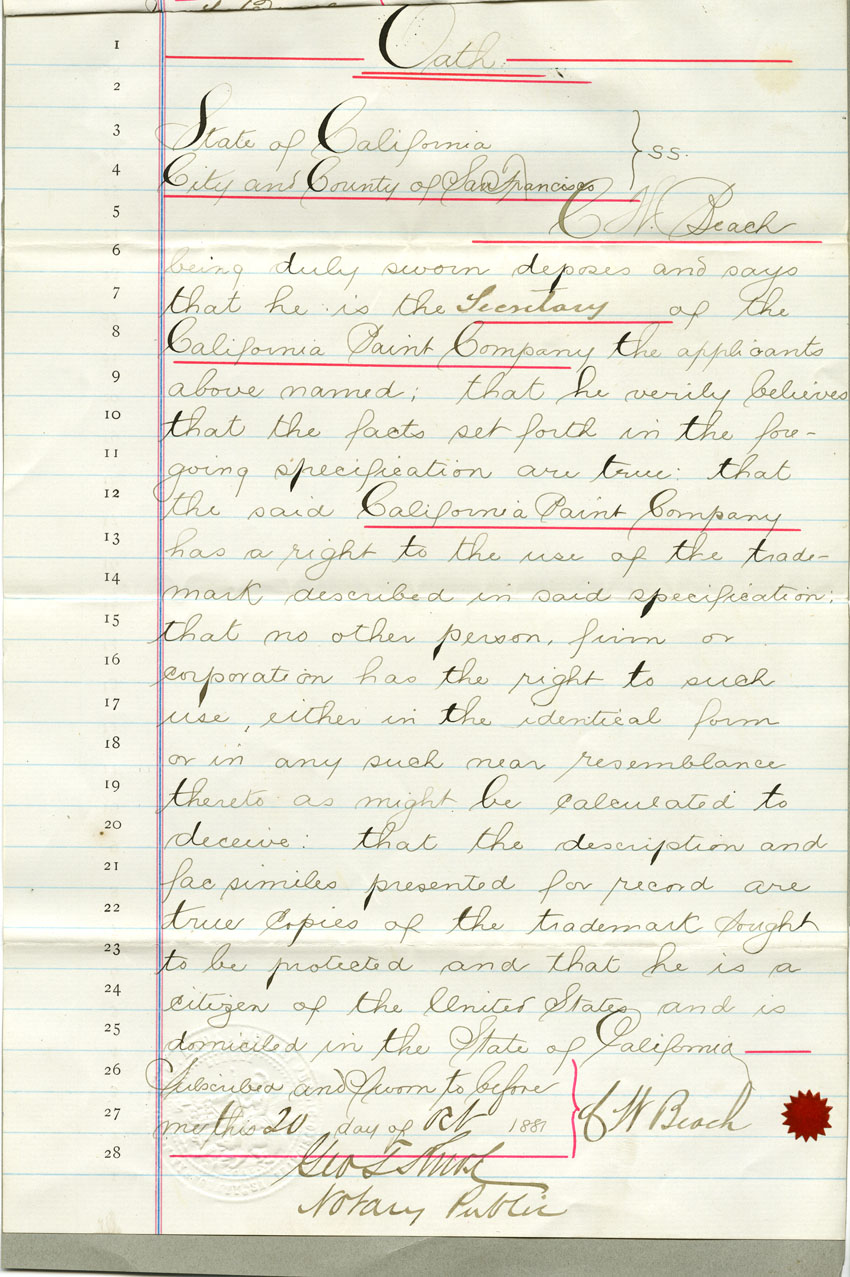 1
Oath
2
3
State of California } ss.
4
City and County of San Francisco
5
C W. Beach
6
being duly sworn deposes and says
7
that he is the Secretary of the
8
California Paint Company the applicants
9
above named; that he verily believes
10
that the facts set forth in the fore-
11
going specification are true: that
12
the said California Paint Company
13
has a right to the use of the trade-
14
mark described in said specification:
15
that no other person, firm or
16
corporation has the right to such
17
use, either in the identical form
18
or in any such near resemblance
19
thereto as might be calculated to
20
deceive: that the description and
21
fac similes presented for record are
22
true copies of the trademark sought
23
to be protected and that he is a
24
citizen of the United States and is
25
domiciled in the State of California
26
Subscribed and Sworn to before
27
me this 20 day of Oct 1881 } C W Beach
28
Geo T
Notary Public